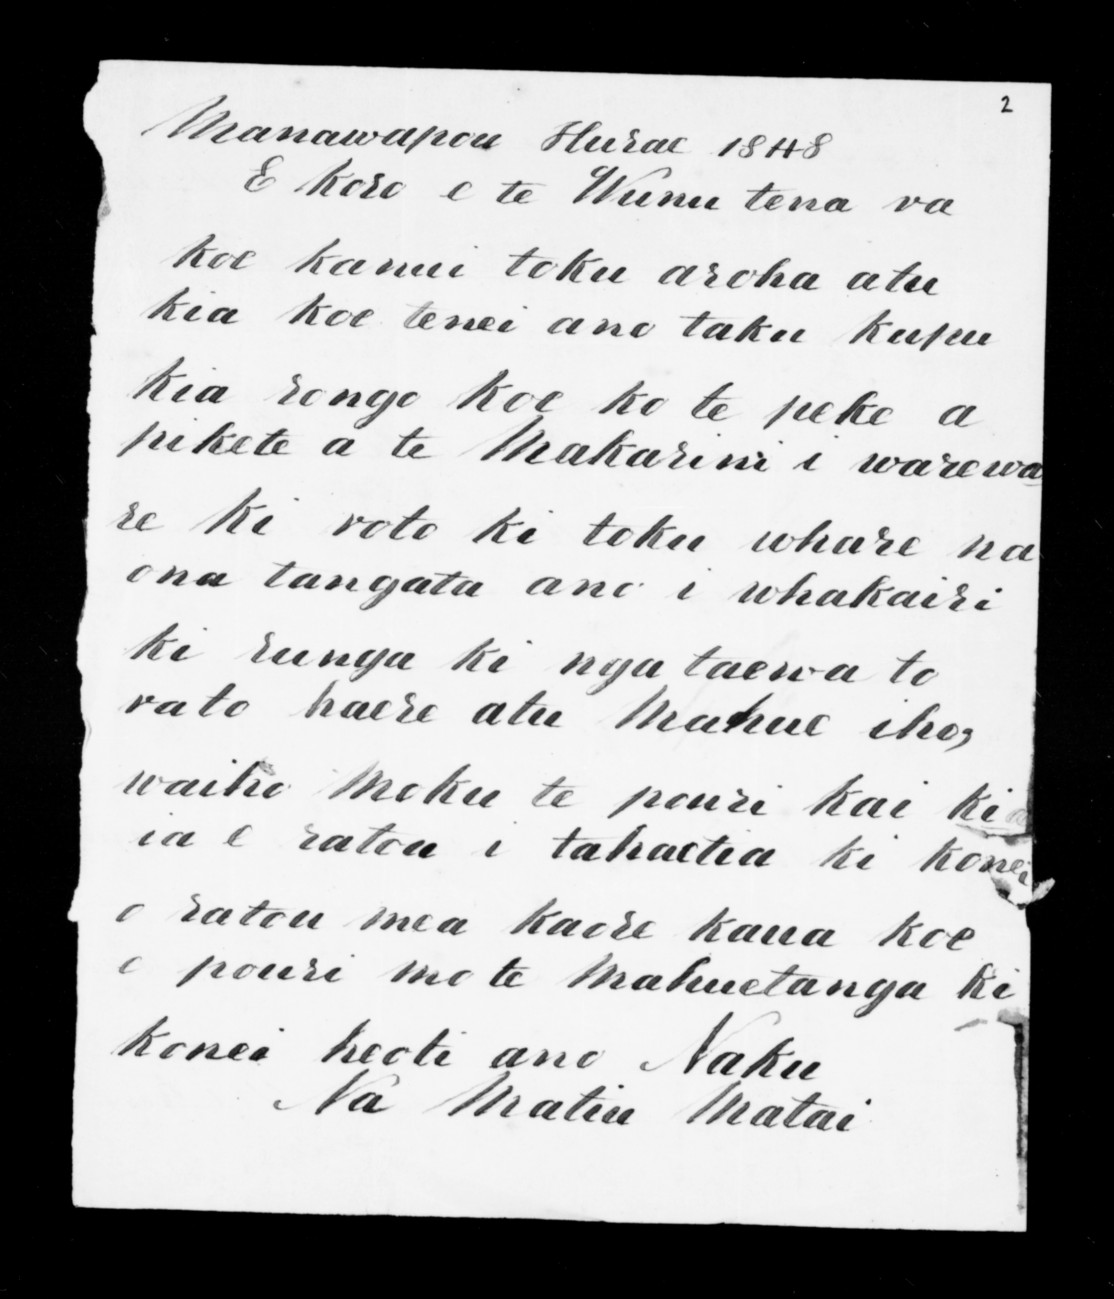 2
Manawapou Hurae 1848
E Koro e te Wunu tena ra
koe kanui toku aroha atu
kia koe tenei ano taku kupu
kia rongo koe ko te peke a
pikete a te Makarini i warewa
re ki roto ki toku whare na
ona tangata ano i whakairi
ki runga ki nga taewa to
rato haere atu Mahue iho,
waiho Moku te pouri kai kia
ia e ratou i tahaetia ki konei
o ratou mea kaore kaua koe
e pouri mo te Mahuetanga ki
konei heoti ano Naku
Na Matiu Matai